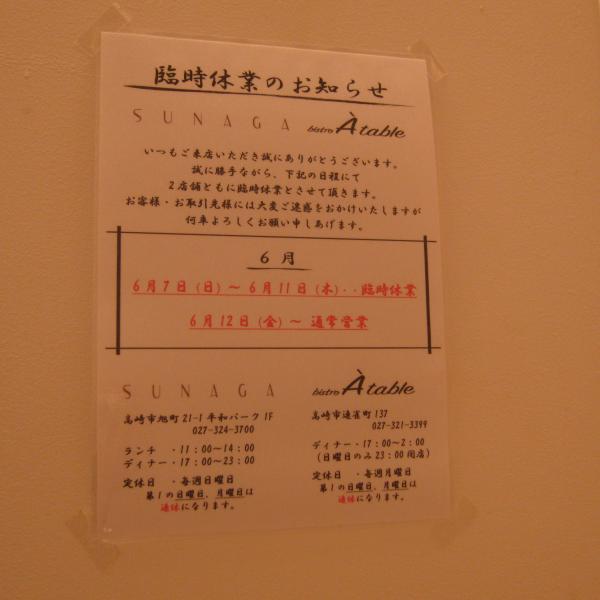 臨時休業のお知らせ
SUNAGA bistro Àtable
いつもご来店いただき誠にありがとうございます。
誠に勝手ながら、下記の日程にて
2店舗ともに臨時休業とさせて頂きます。
お客様・お取引先様には大変ご迷惑をおかけいたしますが
何卒よろしくお願い申しあげます。
6月
6月7日(日)～6月11日(木)・・臨時休業
6月12日(金)～通常営業
SUNAGA
高崎市旭町21-1平和パーク1F
027-324-3700
ランチ ・11:00～14:00
ディナー・17:00～23:00
定休日 ・毎週日曜日
第1の日曜日、月曜日は
連休になります。
bistro Àtable
高崎市連雀町137
027-321-3399
ディナー・17:00～2:00
(日曜日のみ23:00閉店)
定休日 ・毎週月曜日
第1の日曜日、月曜日は
連休になります。